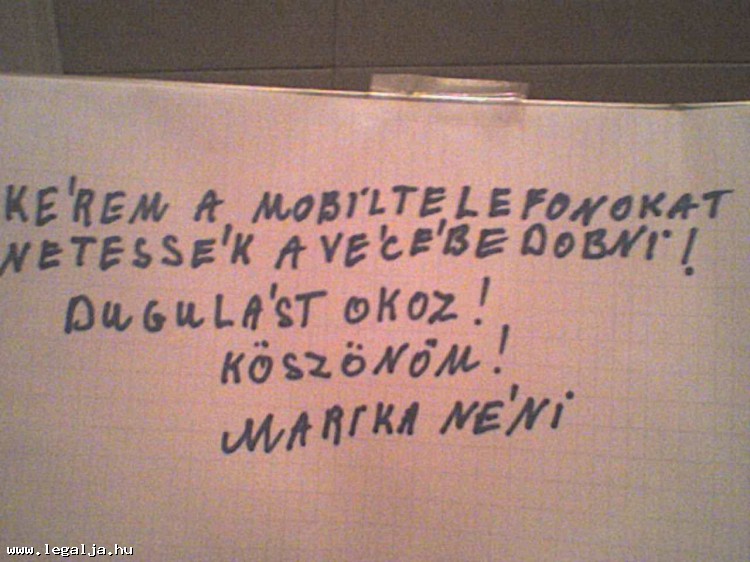 KÉREM A MOBILTELEFONOKAT
NETESSÉK A VÉCÉBE DOBNI!
DUGULÁST OKOZ!
KÖSZÖNÖM!
MARIKA NÉNI
www.legalja.hu